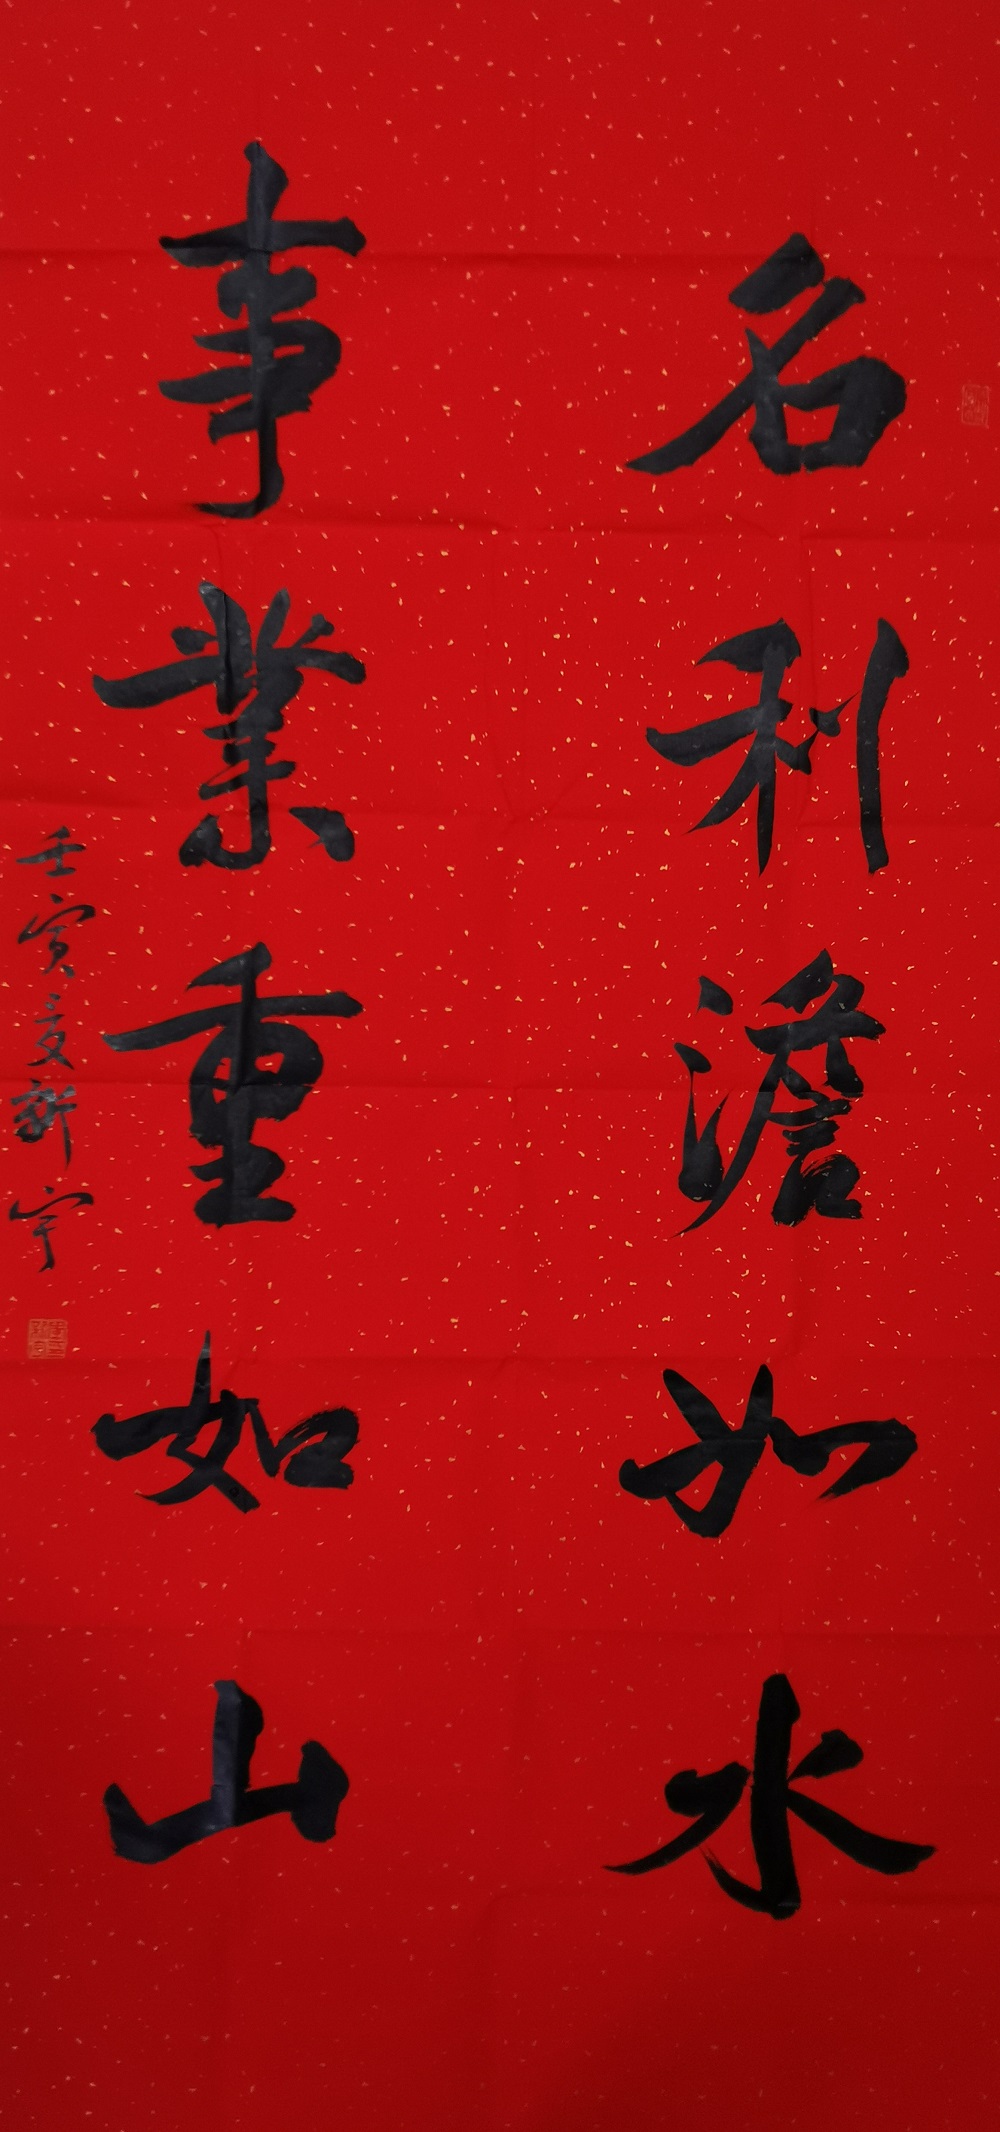 名利澹如水
事業重如山
壬寅夏新宇